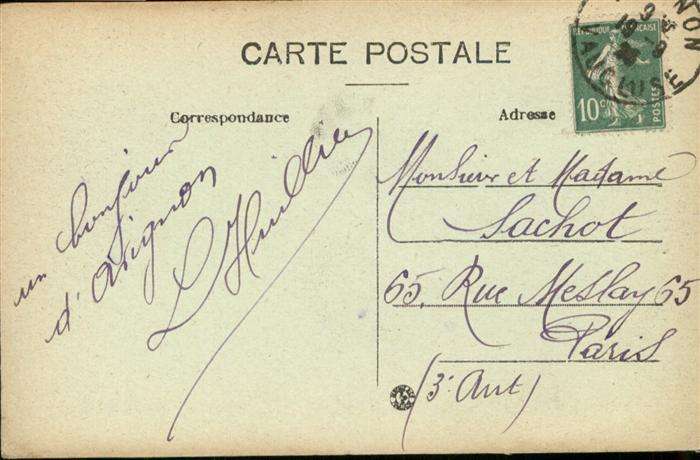 CARTE POSTALE
Correspondance
un bonjour
d'Avignon
L'Huillier
Adresse
Monsieur et Madame
Sachot
65, Rue Meslay 65
Paris
(3e Arrt)
RÉPUBLIQUE FRANÇAISE
10c
POSTES
VAUCLUSE